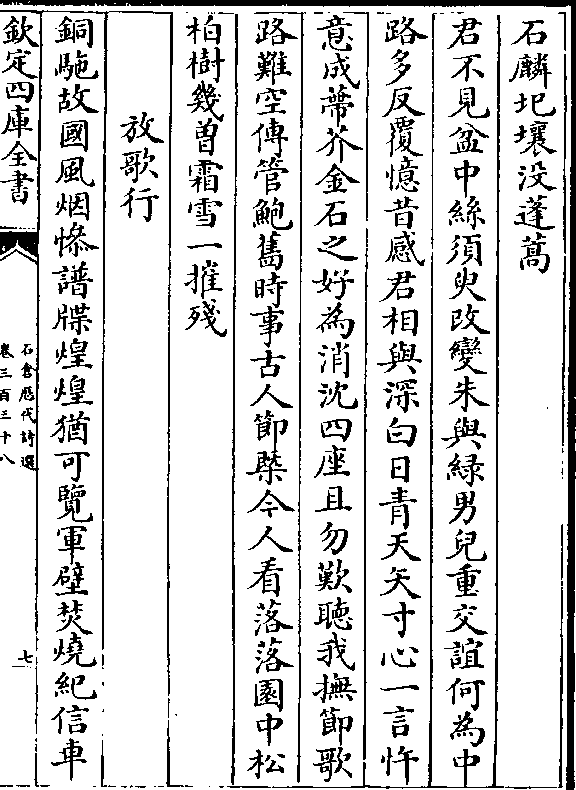 石麟圯壤没蓬蒿
君不見盆中絲須臾改變朱與緑男兒重交誼何為中
路多反覆憶昔感君相與深白日青天矢寸心一言忤
意成蔕芥金石之好為消沈四座且勿歎聽我撫節歌
路難空傳管鮑舊時事古人節槩今人看落落園中松
柏樹幾曽霜雪一摧殘
放歌行
銅駞故國風烟慘譜牒煌煌猶可覽軍壁焚燒紀信車
欽定四庫全書
石倉歴代詩選
卷三百三十八
七